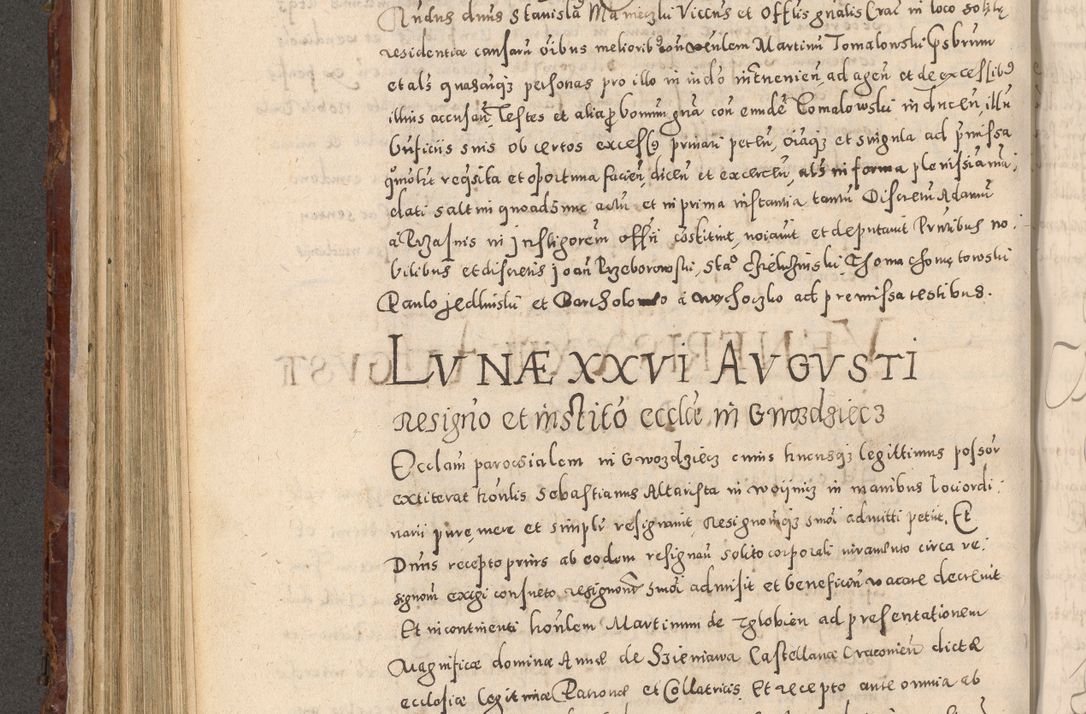 Rndus dnus Stanisla Manieczki Viccus et Offlis gnalis Crac in loco solitę
residentiæ causarū oibus melioribꝫ con Martinū Tomalowski psbrum
et als quascunqꝫ personas pro illo in indo intnenieñ, ad ageñ et de excessibꝰ
illius accusañ, Testes et alia ꝓ bonum gna con eundē Tomalowski induceñ, illū
suis ob certos excessꝰ priuari peteñ, oiaqꝫ et singula ad pmissa
qmolit reqsita et oportuna facieñ, diceñ et exerceñ, als in forma plenissiama
dati saltim quoad actū et in prima instantia tantū Discretū Adamū
à in Instigorem offii costituit, noiauit et deputauit Pntibus no
bilibus et discretis Joañ Przeborowski, Stao Chelchinski, Thoma Chomętowski
Paulo Jedlinski et Bartholomeo à Wychoczko ad premissa testibus.
LVNÆ XXVI AVGVSTI
Resigno et institō ecclæ in Gwozdziecz
Ecclam parocsialem in Gwozdziecz cuius hucusqꝫ legittimus possor
extiterat honlis Sebastianus Altarista in Woijnicz in manibus loci ordi
narii pure, mere et simplr resignauit, Resignonqꝫ smoi admitti petiit. Et
Dnus recepto prius ab eodem resignañ solito corporali iuramento circa re
signom exigi consueto, resignonē smoi admisit et beneficiū vacare decreuit
Et incontinenti honlem Martinum de Zglobien ad presentationem
Magnificæ dominæ Annæ de Szieniawa Castellanæ Cracouień dictæ
ecclesiæ legitimæ Patronæ et Collatricis, Et recepto ante omnia ab